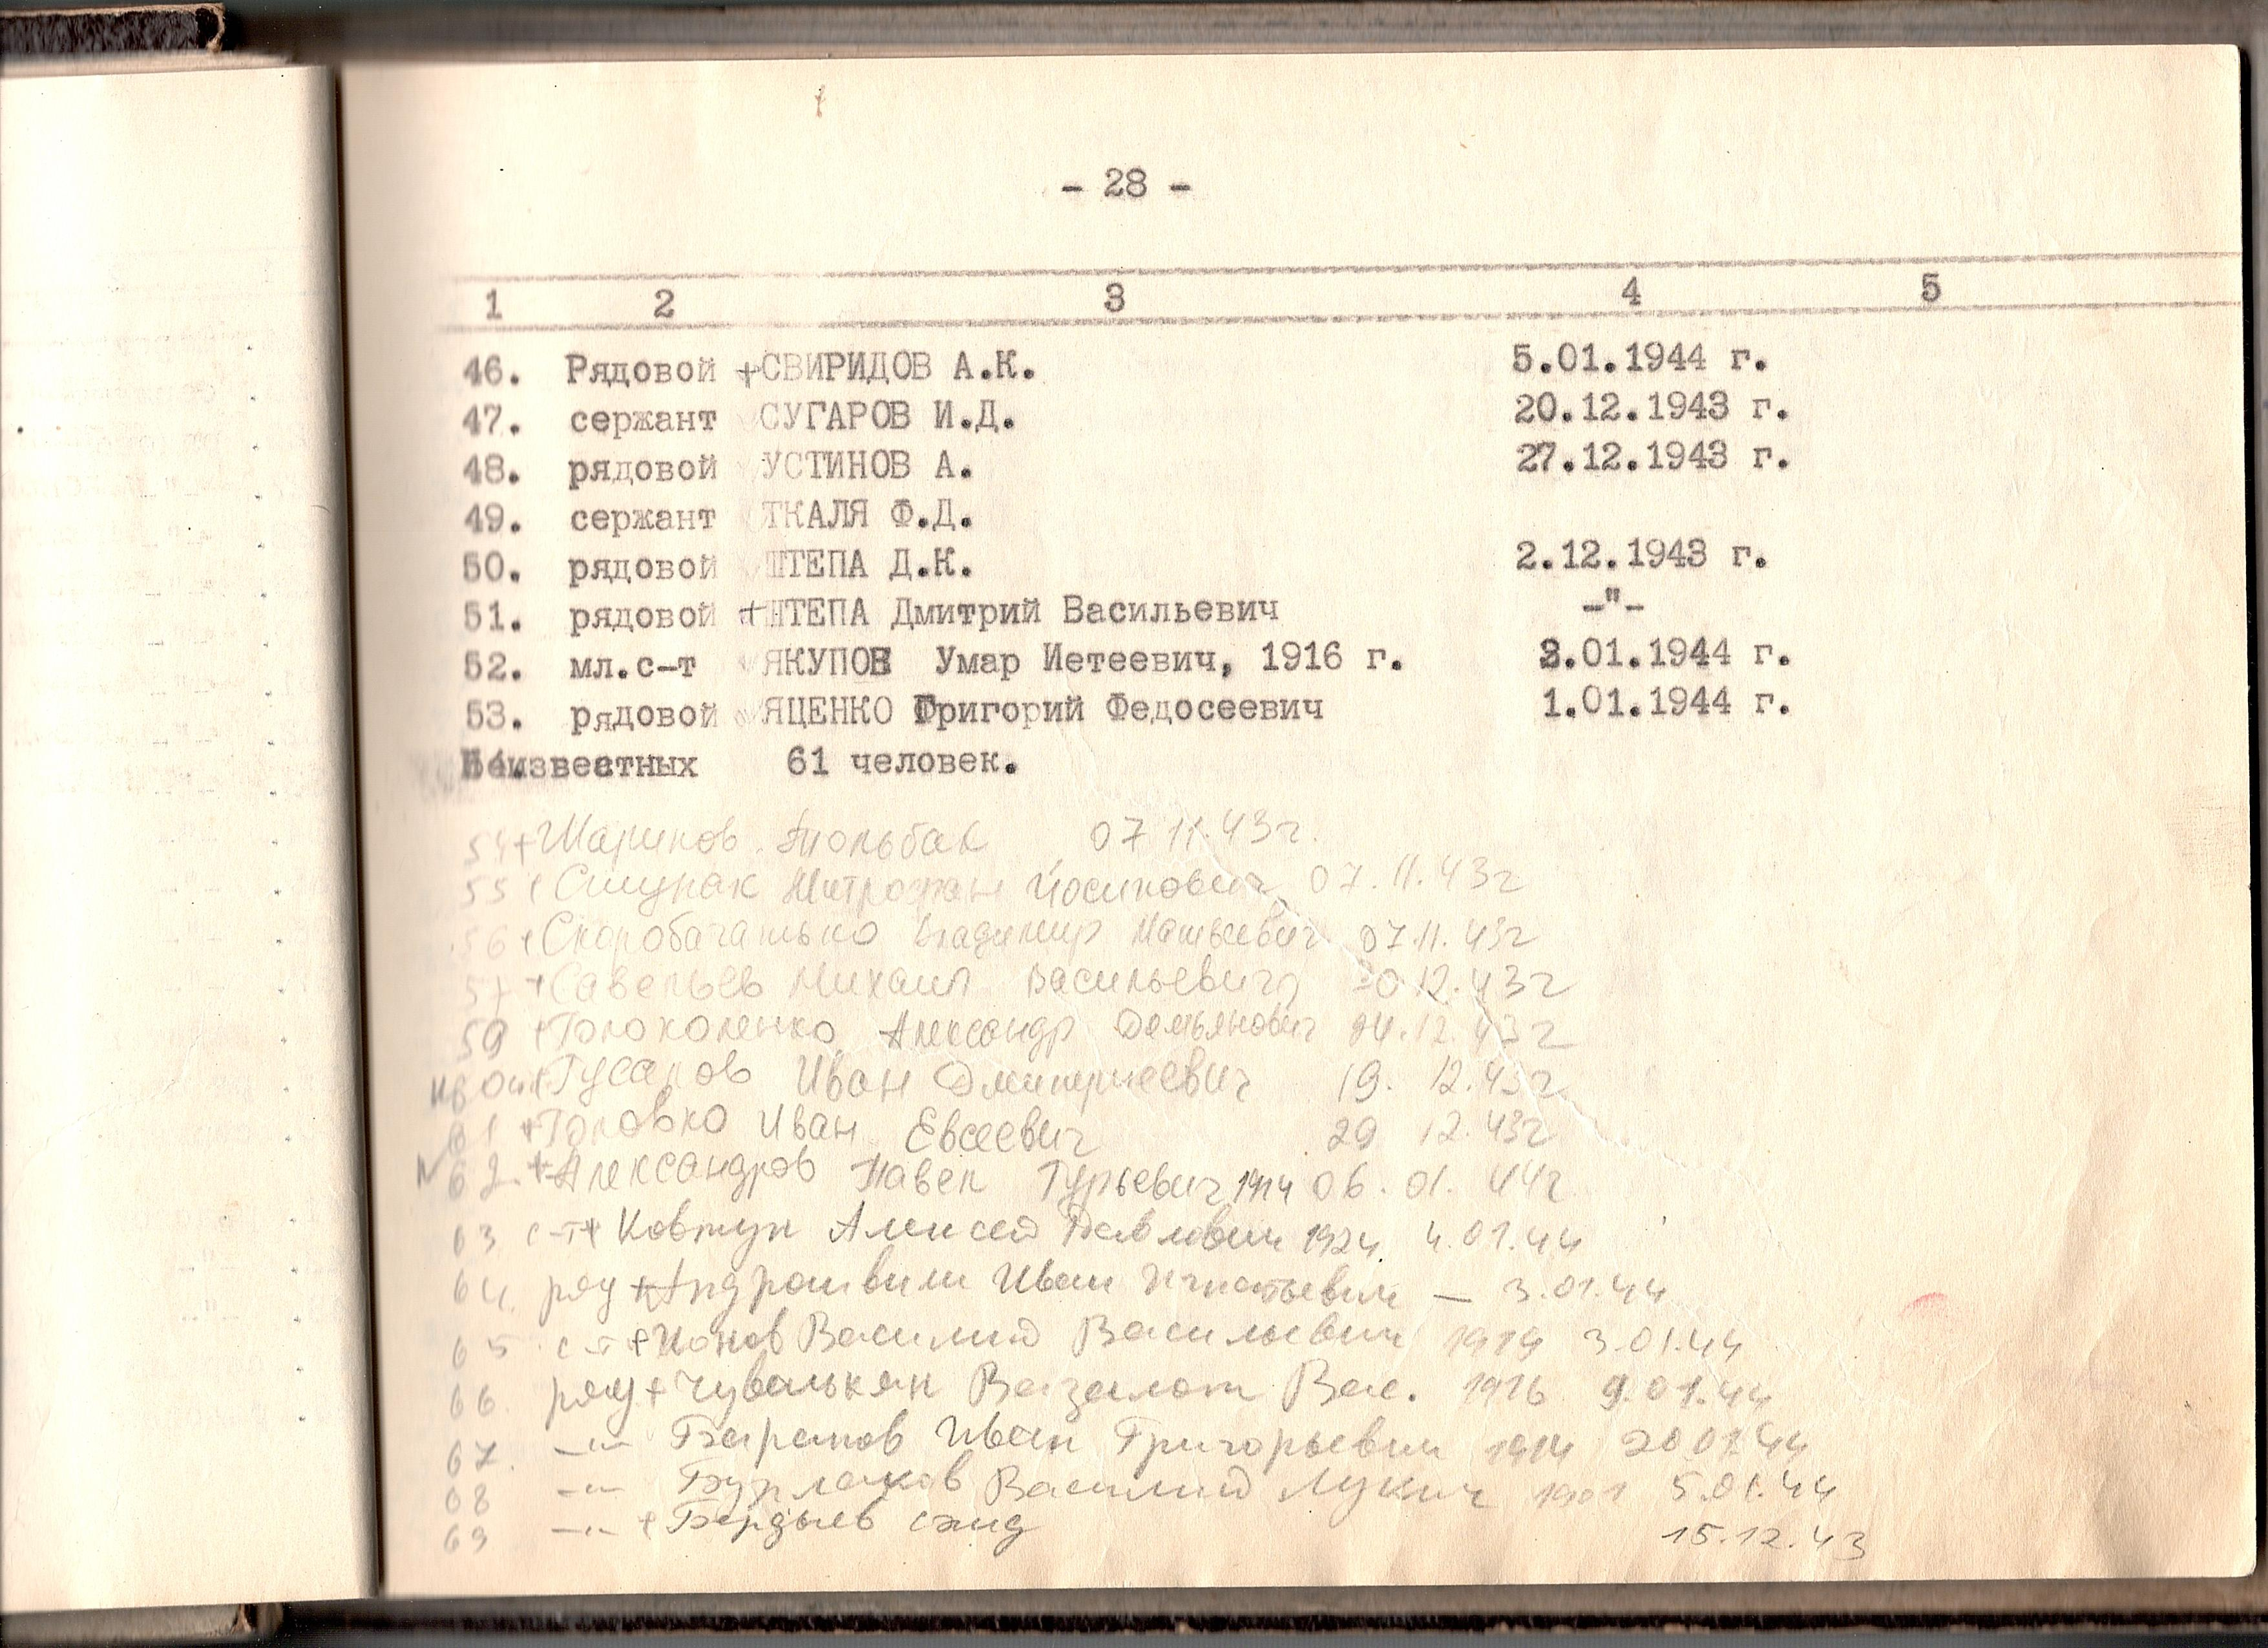 - 28 -
1 2 3 4 5
46. Рядовой +СВИРИДОВ А.К. 5.01.1944 г.
47. сержант СУГАРОВ И.Д. 20.12.1943 г.
48. рядовой УСТИНОВ А. 27.12.1943 г.
49. сержант ТКАЛЯ Ф.Д.
50. рядовой ШТЕПА Д.К. 2.12.1943 г.
51. рядовой +ШТЕПА Дмитрий Васильевич -"-
52. мл.с-т ЯКУПОВ Умар Иетеевич, 1916 г. 3.01.1944 г.
53. рядовой ЯЦЕНКО Григорий Федосеевич 1.01.1944 г.
Неизвестных 61 человек.
54 + Шарипов 07 11.43г.
55 Митрофан 07.11.43г
56 + Скоробагатько Владимир Матвеевич 07.11.43г
57 + Савельев Михаил Васильевич 12.43г
59 + Голоколенко Александр Демьянович 12.43г
+ Гусаров Иван Дмитриевич 19. 12.43г
61 + Головко Иван Евсеевич 29 12.43г
62. + Александров Павел Гурьевич 1914 06. 01. 44г
63 с-т + Ковтун Алексей Павлович 1924 4.01.44
64. ряд + Иван Игнатьевич — 3.01.44
65 с-т + Ионов Василий Васильевич 1914 3.01.44
66. ряд + Вас. 1916 9.01.44
67. -"- Баранов Иван Григорьевич 1914 20 01 44
68 -"- Бурлаков Василий Лукич 1901 5.01.44
69 -"- + Бердыев 15.12.43